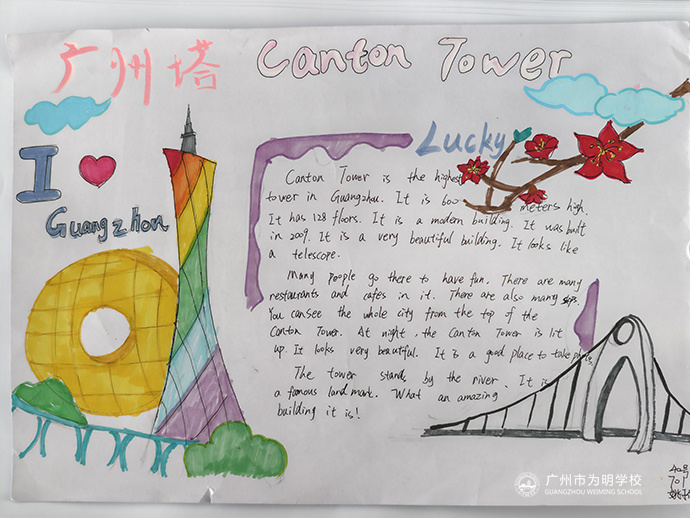 广州塔 Canton Tower
Lucky
I
Guangzhou
Canton Tower is the highest
tower in Guangzhou. It is 600 meters high.
It has 128 floors. It is a modern building. It was built
in 2009. It is a very beautiful building. It looks like
a telescope.
Many people go there to have fun. There are many
restaurants and cafés in it. There are also many
You can see the whole city from the top of the
Canton Tower. At night, the Canton Tower is lit
up. It looks very beautiful. It is a good place to take photos.
The tower stands by the river. It is
a famous landmark. What an amazing
building it is!
40号
701
广州市为明学校
GUANGZHOU WEIMING SCHOOL